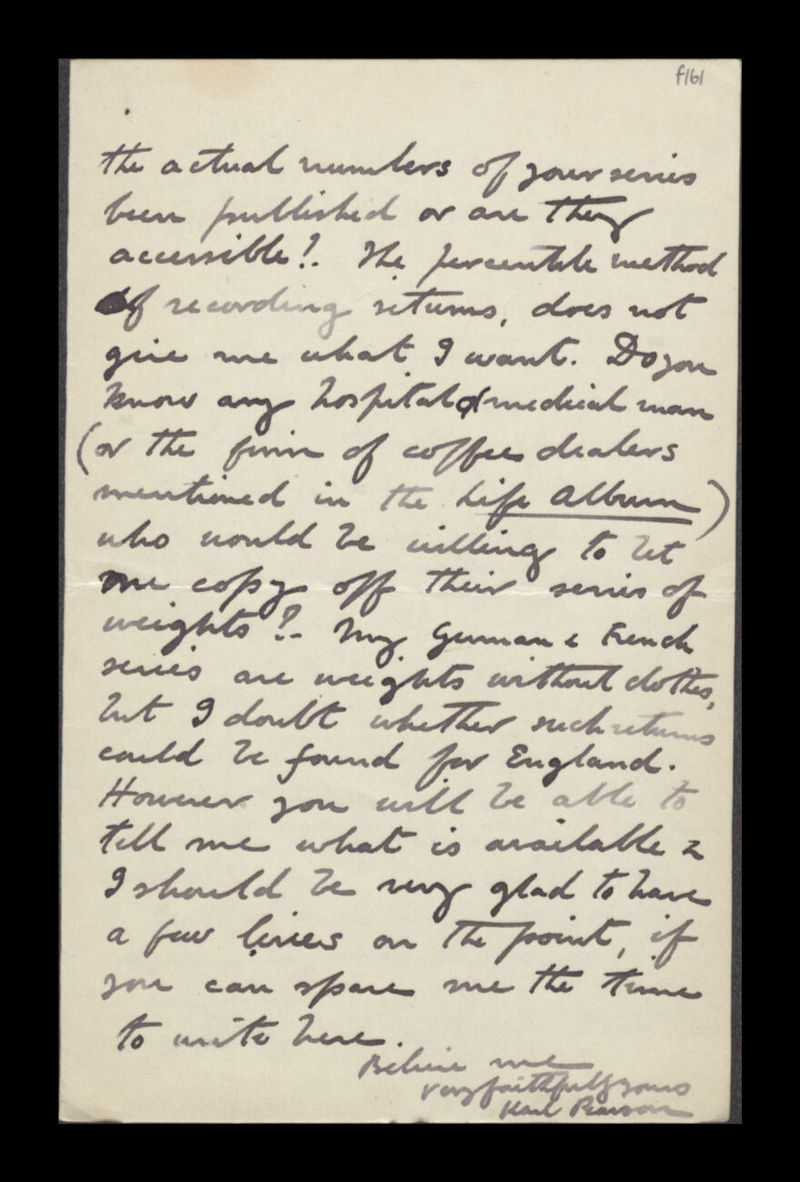 f161
the actual numbers of your series
been published or are they
accessible?. The percentile method
of recording returns, does not
give me what I want. Do you
know any hospital or medical man
(or the firm of coffee dealers
mentioned in the Life Album)
who would be willing to let
me copy off their series of
weights?- My German & French
series are weights without clothes,
but I doubt whether such returns
could be found for England.
However you will be able to
tell me what is available &
I should be very glad to have
a few lines on the point, if
you can spare me the time
to write here.
Believe me
very faithfully yours
Karl Pearson